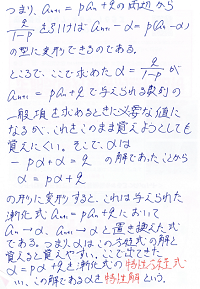 つまり、an+1 = pan+qの両辺から
q/1-p を引けば an+1-α=p(an-α)
の型に変形できるのである。
ところで、ここで求めた α = q/1-p が
an+1 = pan+q で与えられる数列の
一般項を求めるときに必要な値に
なるが、これをこのまま覚えようとしても
覚えにくい。そこで、αは
-pα+α=q の解であったことから
α = pα+q
の形に変形すると、これは与えられた
漸化式 an+1=pan+q において
an→α、an+1→αと置き換えた式
である。つまりαはこの方程式の解と
覚えると覚えやすい。ここで出てきた
α=pα+qを漸化式の特性方程式
いい、この解であるαを特性解という。